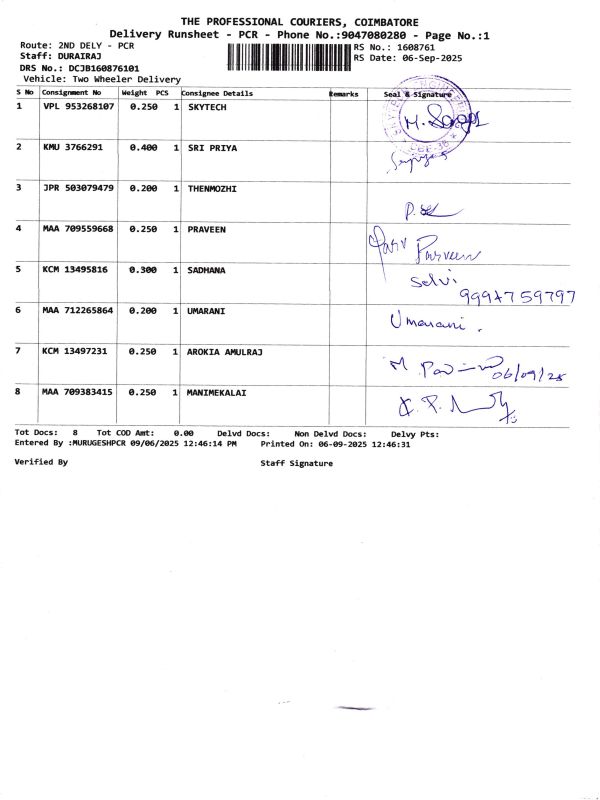 THE PROFESSIONAL COURIERS, COIMBATORE
Delivery Runsheet - PCR - Phone No.:9047080280 - Page No.:1
Route: 2ND DELY - PCR RS No.: 1608761
Staff: DURAIRAJ RS Date: 06-Sep-2025
DRS No.: DCJB160876101
Vehicle: Two Wheeler Delivery
S No Consignment No Weight PCS Consignee Details Remarks Seal & Signature
1 VPL 953268107 0.250 1 SKYTECH
2 KMU 3766291 0.400 1 SRI PRIYA
3 JPR 503079479 0.200 1 THENMOZHI
4 MAA 709559668 0.250 1 PRAVEEN
Parveen
5 KCM 13495816 0.300 1 SADHANA Selvi
9994759797
6 MAA 712265864 0.200 1 UMARANI Umarani.
7 KCM 13497231 0.250 1 AROKIA AMULRAJ M
06/09/25
8 MAA 709383415 0.250 1 MANIMEKALAI
Tot Docs: 8 Tot COD Amt: 0.00 Delvd Docs: Non Delvd Docs: Delvy Pts:
Entered By :MURUGESHPCR 09/06/2025 12:46:14 PM Printed On: 06-09-2025 12:46:31
Verified By Staff Signature